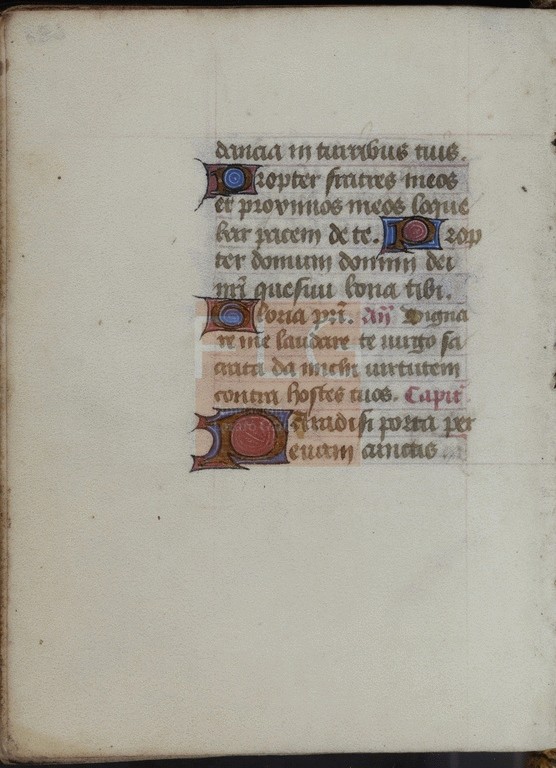 dancia in turribus tuis.
Propter fratres meos
et proximos meos loque
bar pacem de te. Prop
ter domum domini dei
nr̃i quesiui bona tibi.
Gloria pr̃i. Añ Digna
re me laudare te uirgo sa
crata da michi uirtutem
contra hostes tuos. Capit̃.
Paradisi porta per
euam cunctis